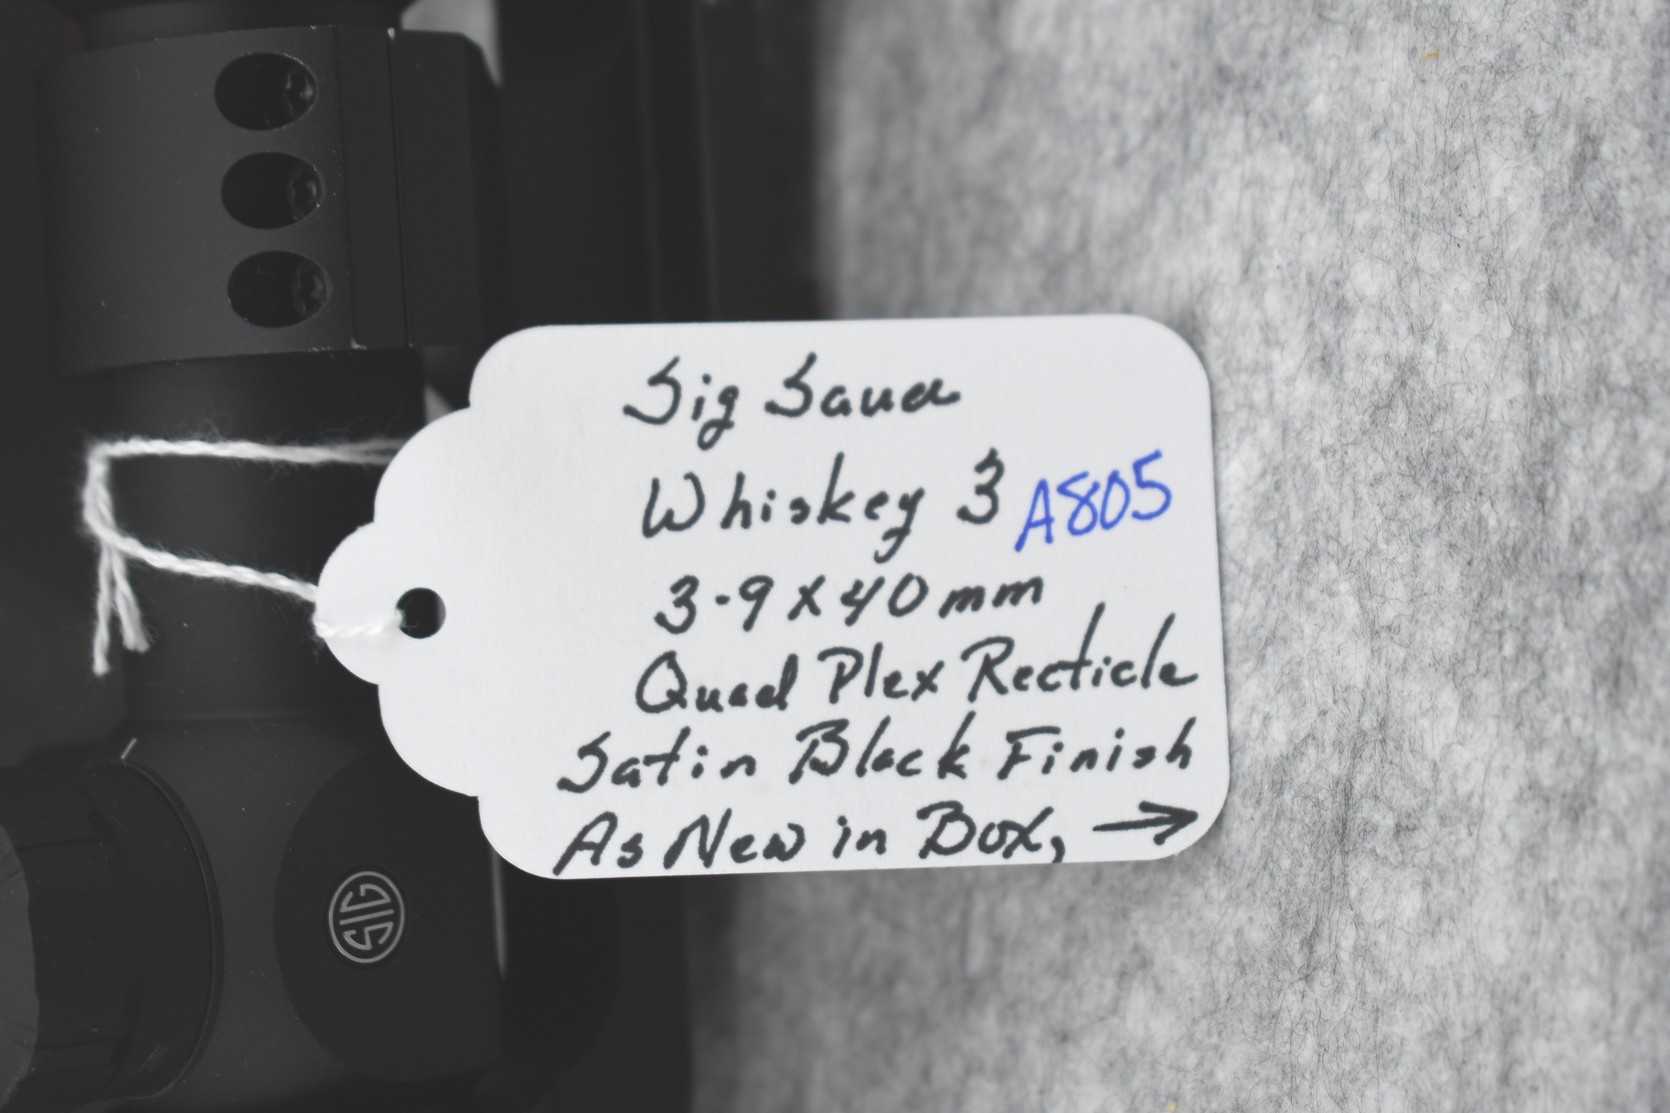 Sig Sauer
Whiskey 3 A805
3-9x40mm
Quad Plex Recticle
Satin Black Finish
As New in Box, →
SIG